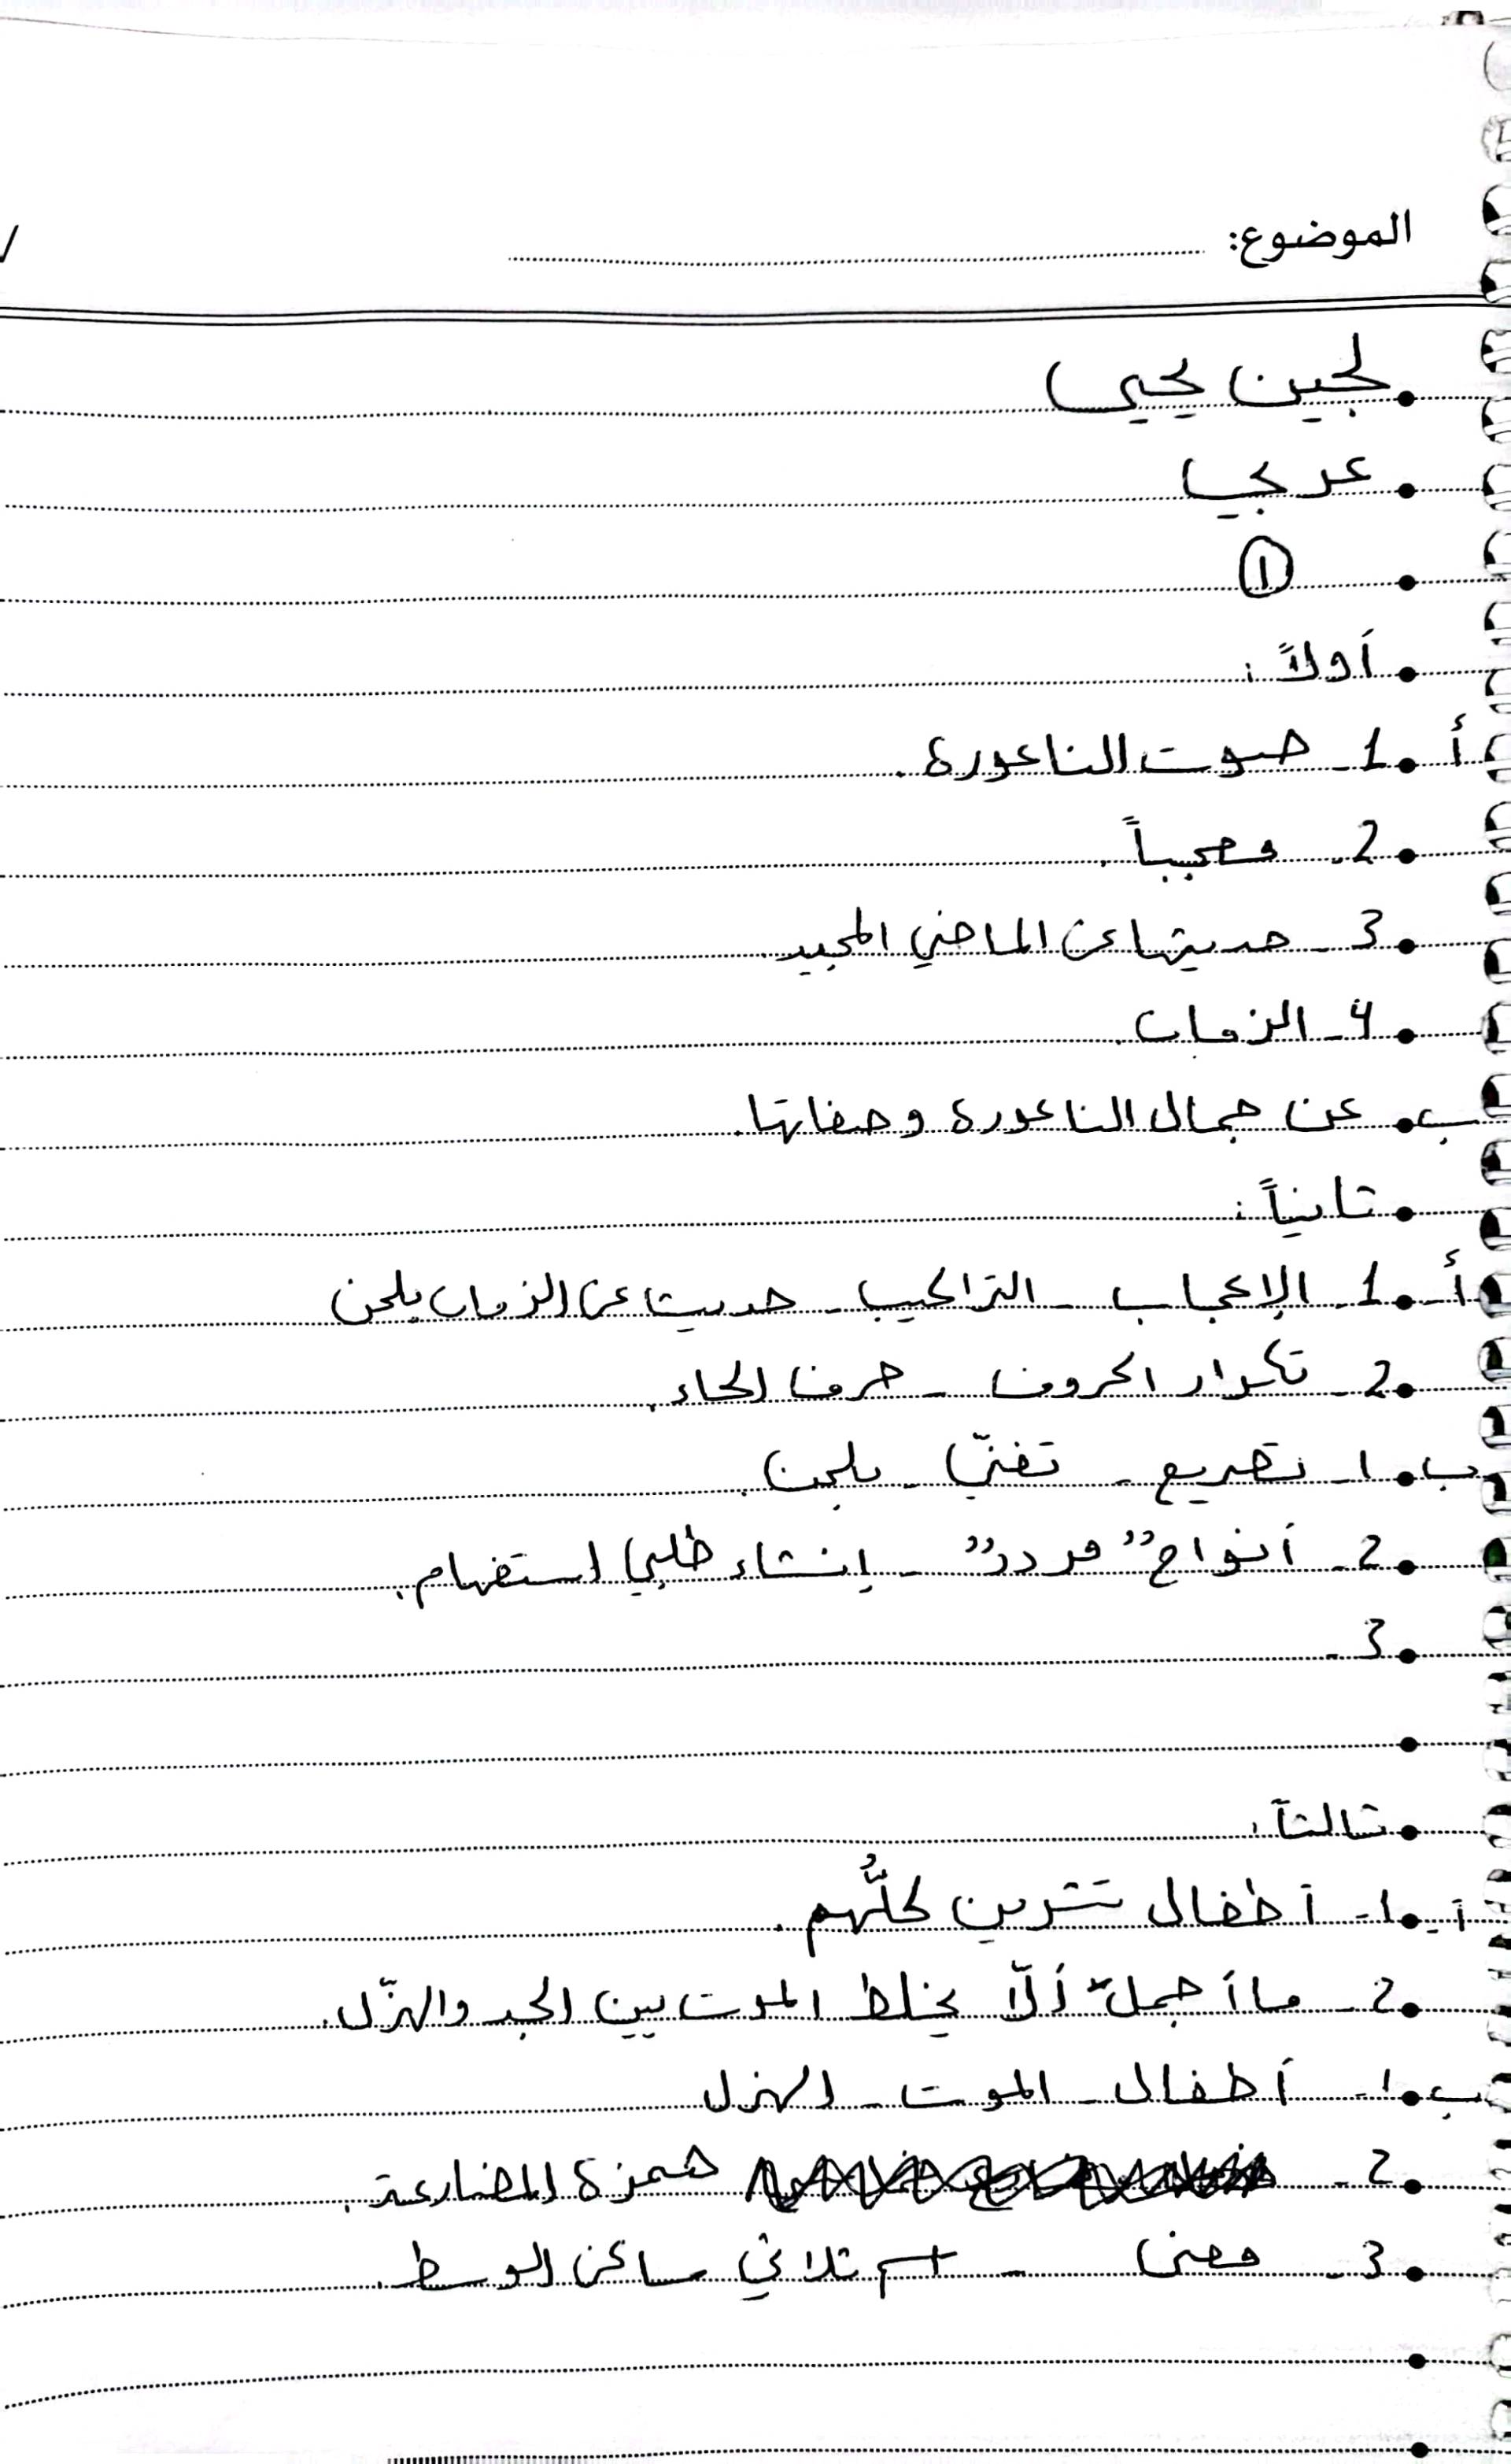 الموضوع:
لجين يحيى
عربي
①
أولاً:
أ 1- صوت الناعورة.
2- معجباً.
3- حديثها عن الماضي المجيد.
4- الزمان.
ب عن جمال الناعورة وصفاتها.
ثانياً:
أ 1- الإعجاب - التراكيب - حديث عن الزمان بلحن
2- تكرار الحروف - حرف الحاء.
ب 1- تصريع - تغنّي - بلحن.
2- أنواح "مردد" - إنشاء طلبي استفهام.
3-
ثالثاً:
أ 1- أطفال تشرين كلُّهم.
2- ما أجمل ألّا يخلط الموت بين الجد والهزّل.
ب 1- أطفال - الموت - الهزل
2- همزة المضارعة.
3- معنى - اسم ثلاثي ساكن الوسط.